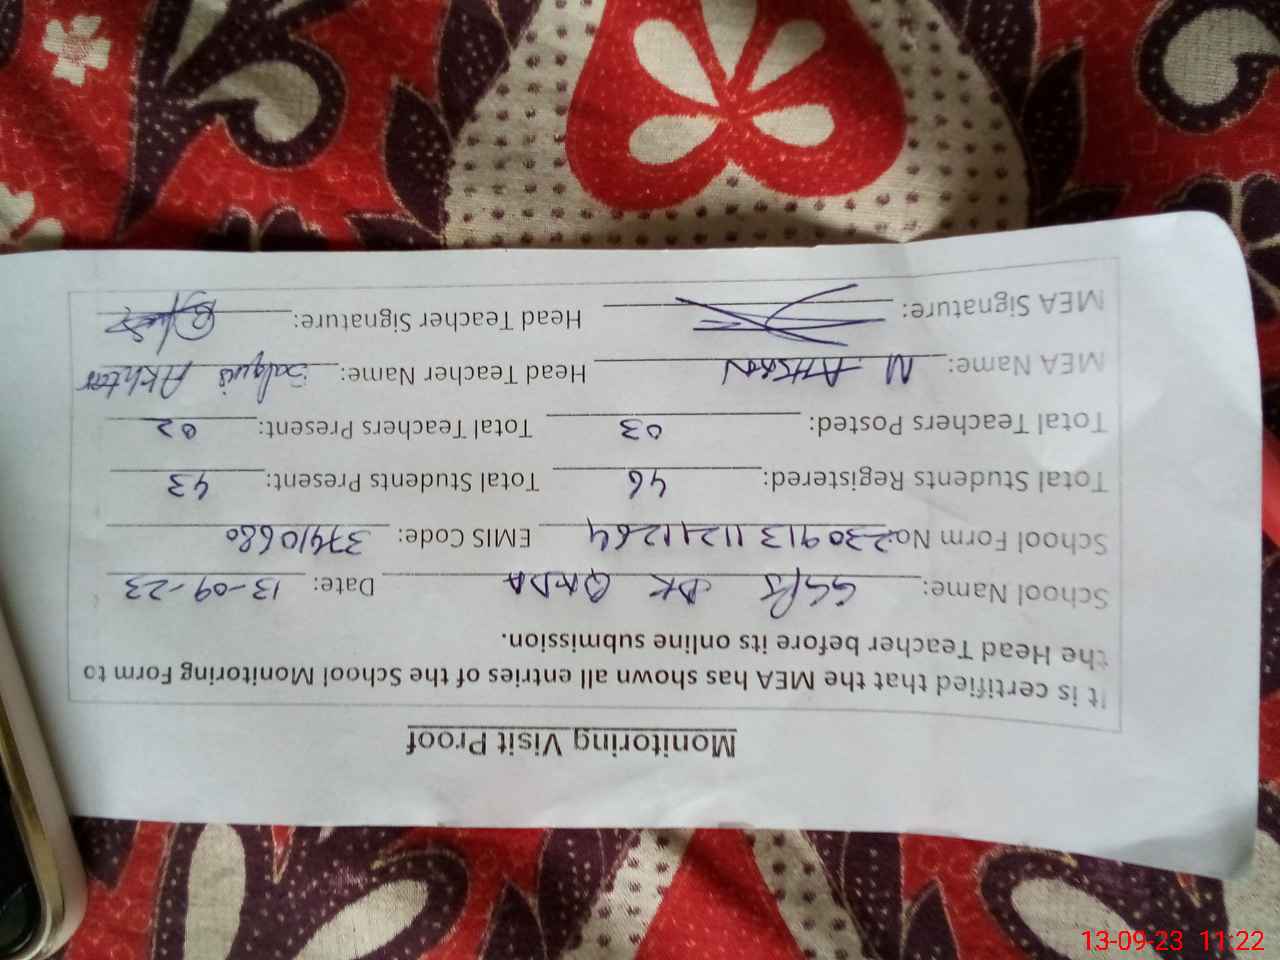 Monitoring Visit Proof
It is certified that the MEA has shown all entries of the School Monitoring Form to
the Head Teacher before its online submission.
School Name: GGPS DK QADA Date: 13-09-23
School Form No: 230913112411264 EMIS Code: 37410680
Total Students Registered: 46 Total Students Present: 43
Total Teachers Posted: 03 Total Teachers Present: 02
MEA Name: M AHSAN Head Teacher Name: Balquis Akhtar
MEA Signature: Head Teacher Signature:
13-09-23 11:22